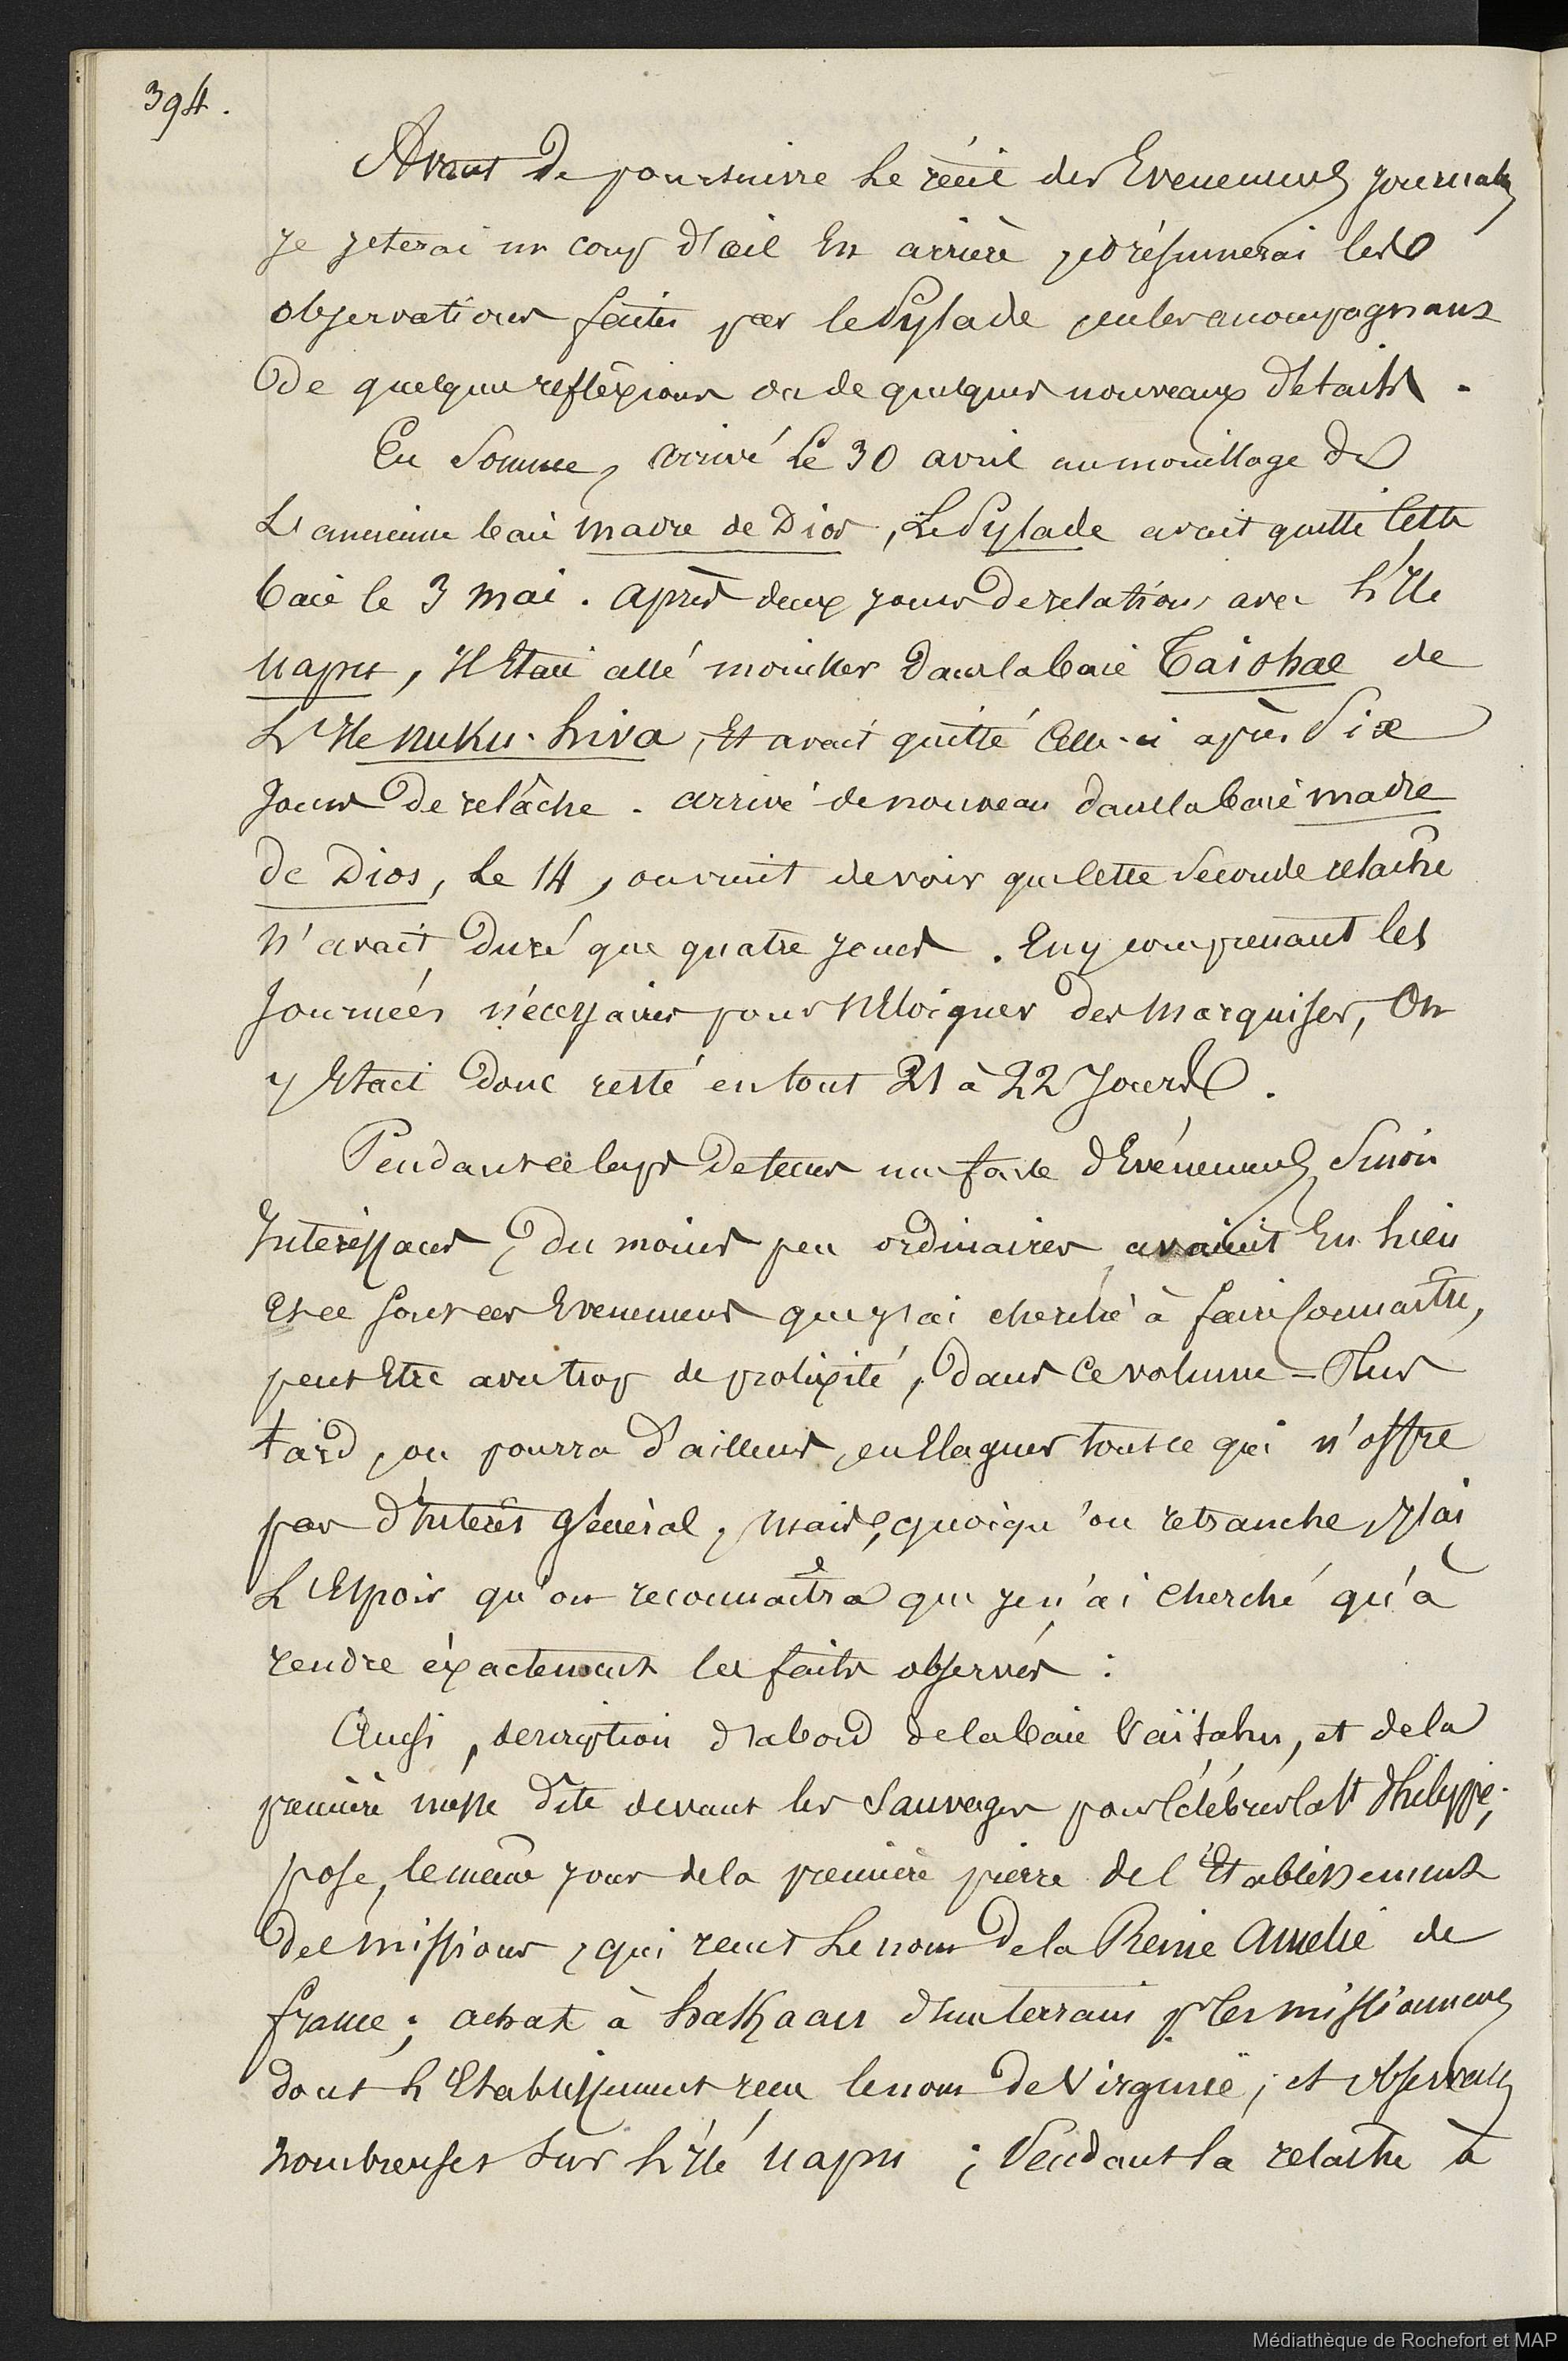 394.
Avant de poursuivre le récit des Evenements journaliers
je jeterai un coup d'œil En arrière, et résumerai les
observations faites par le Pylade, en les accompagnant
de quelques refléxions ou de quelques nouveaux détails.
En Somme, arrivé Le 30 avril au mouillage de
L'ancienne baie madre de Dios, Le Pylade avait quitté Cette
baie le 3 mai. Après deux jours de relations avec L'Ile
uapu, Il Etait allé mouiller dans la baie Taiohae de
L'Ile nuku-hiva, Et avait quitté Celle-ci après Six
Jours de relâche. arrivé de nouveau dans la baie madre
de Dios, Le 14, on vient de voir que Cette Seconde relache
n'avait duré que quatre jours. En y comprenant les
Journées nécessaires pour s'Eloigner des Marquises, On
y Etait donc resté en tout 21 à 22 Jours.
Pendant ce laps de tems une foule d'Evénements, Sinon
Interessants, du moins peu ordinaires, avaient Eu lieu
et ce sont ces Evenemens que j'ai cherché à faire Connaitre,
peut Etre avec trop de prolixité, dans Ce volume = Plus
tard, on pourra d'ailleurs, en Elaguer tout ce qui n'offre
pas d'Intérêt général, mais, quoiqu'on retranche, j'ai
L'Espoir qu'on reconnaitra que je n'ai cherché qu'à
rendre éxactement les faits observés :
Aussi, description d'abord de la baie Vaïtahu, et de la
première messe dite devant les Sauvages pour Célébrer la St Philippe;
pose, le même jour de la première pierre de l'Etablissement
des missions, qui recut Le nom de la Reine Amelie de
france; achat à hakaau d'un terrain pr les missionnaires
dont L'Etablissement recu le nom de Virginie; et observations
nombreuses Sur L'Ile uapu ; Pendant la relache à
Médiathèque de Rochefort et MAP